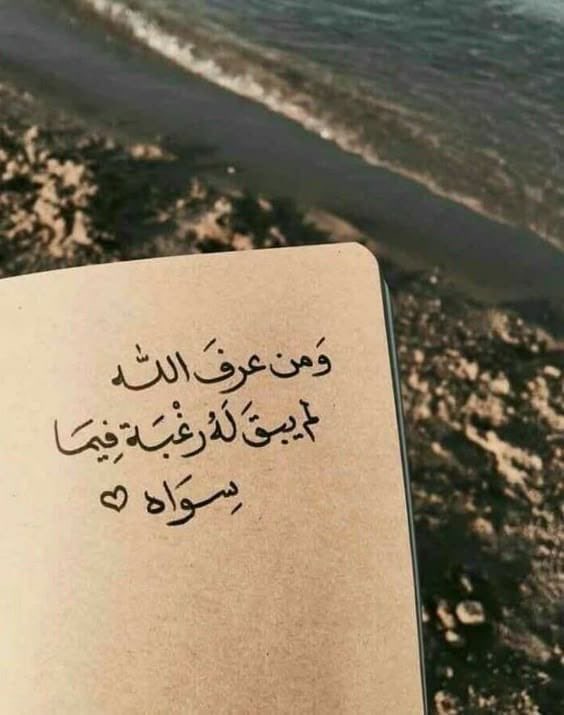 وَمن عرفَ الله
لم يبقَ لَهُ رغْبَة فِيمَا
سِوَاه ♡